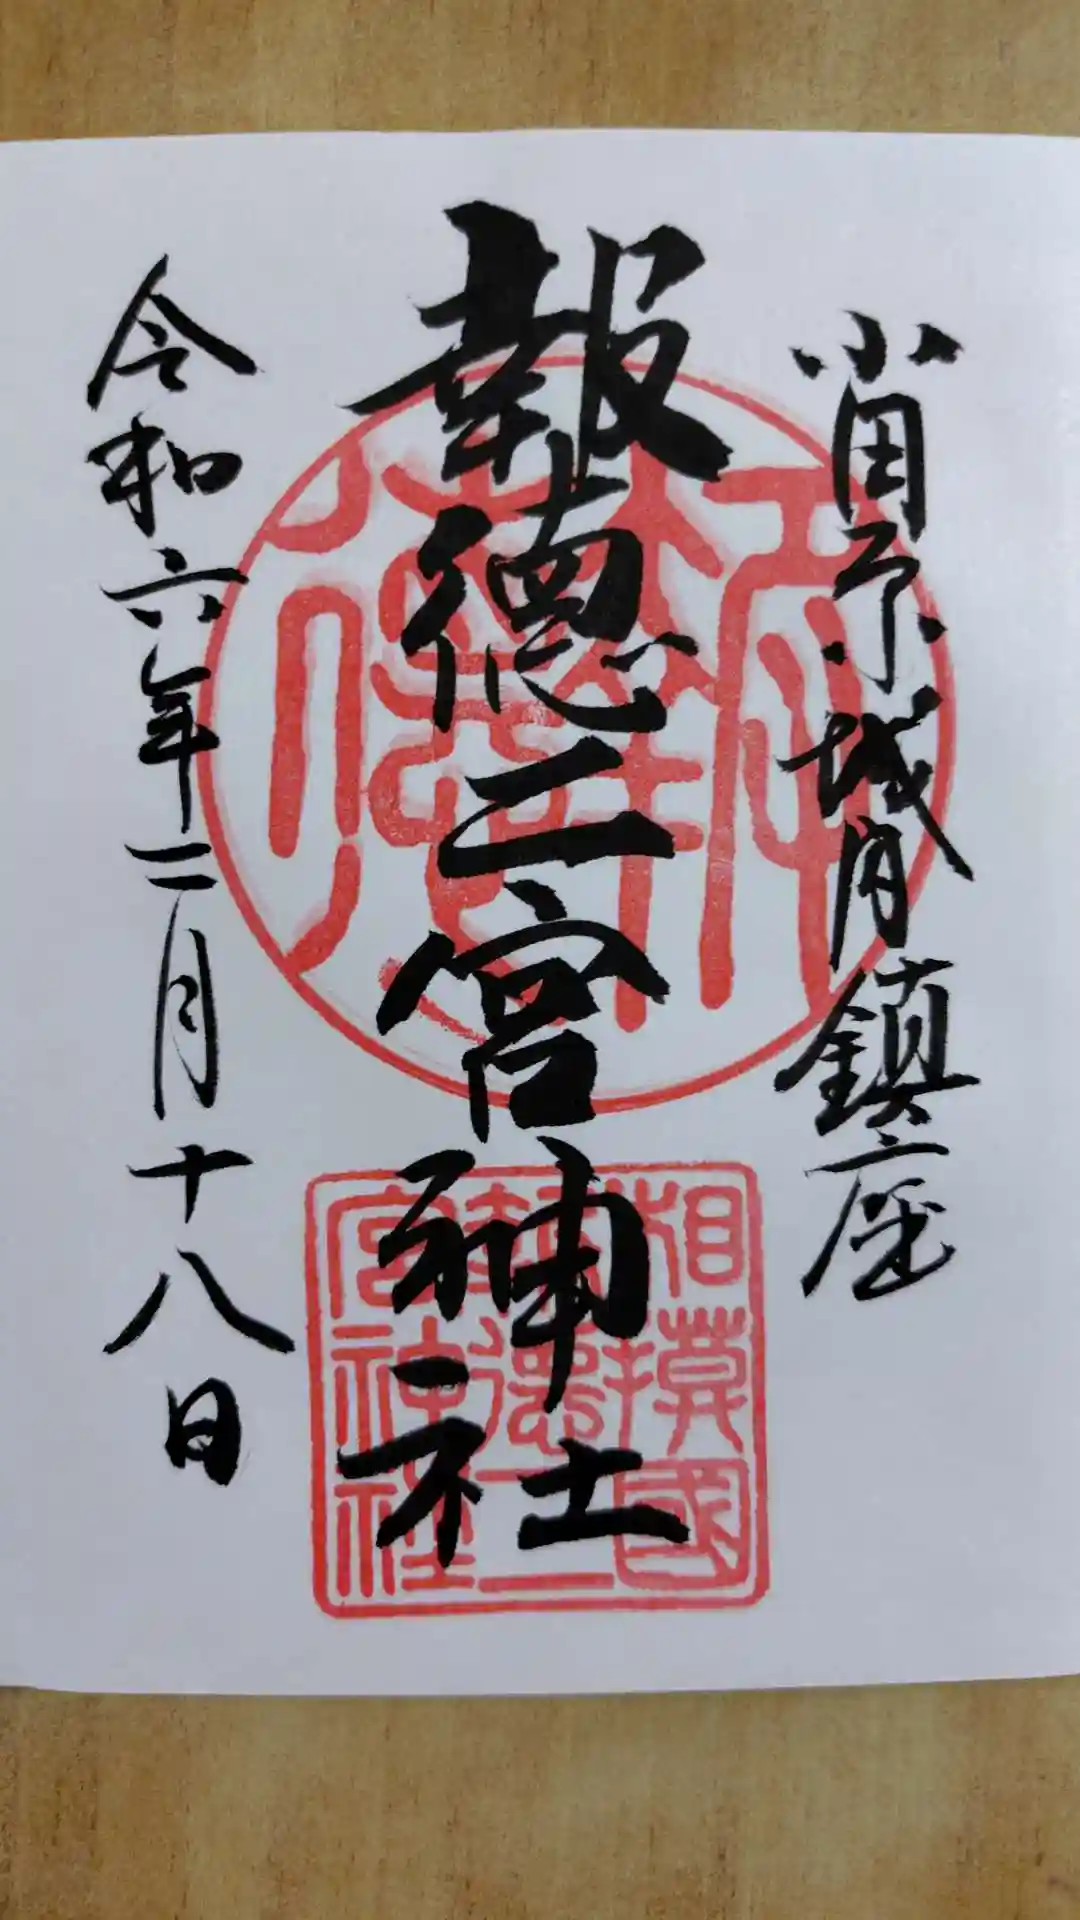 小田原城内鎮座
報徳二宮神社
令和六年二月十八日
相摸國
報徳二
宮神社